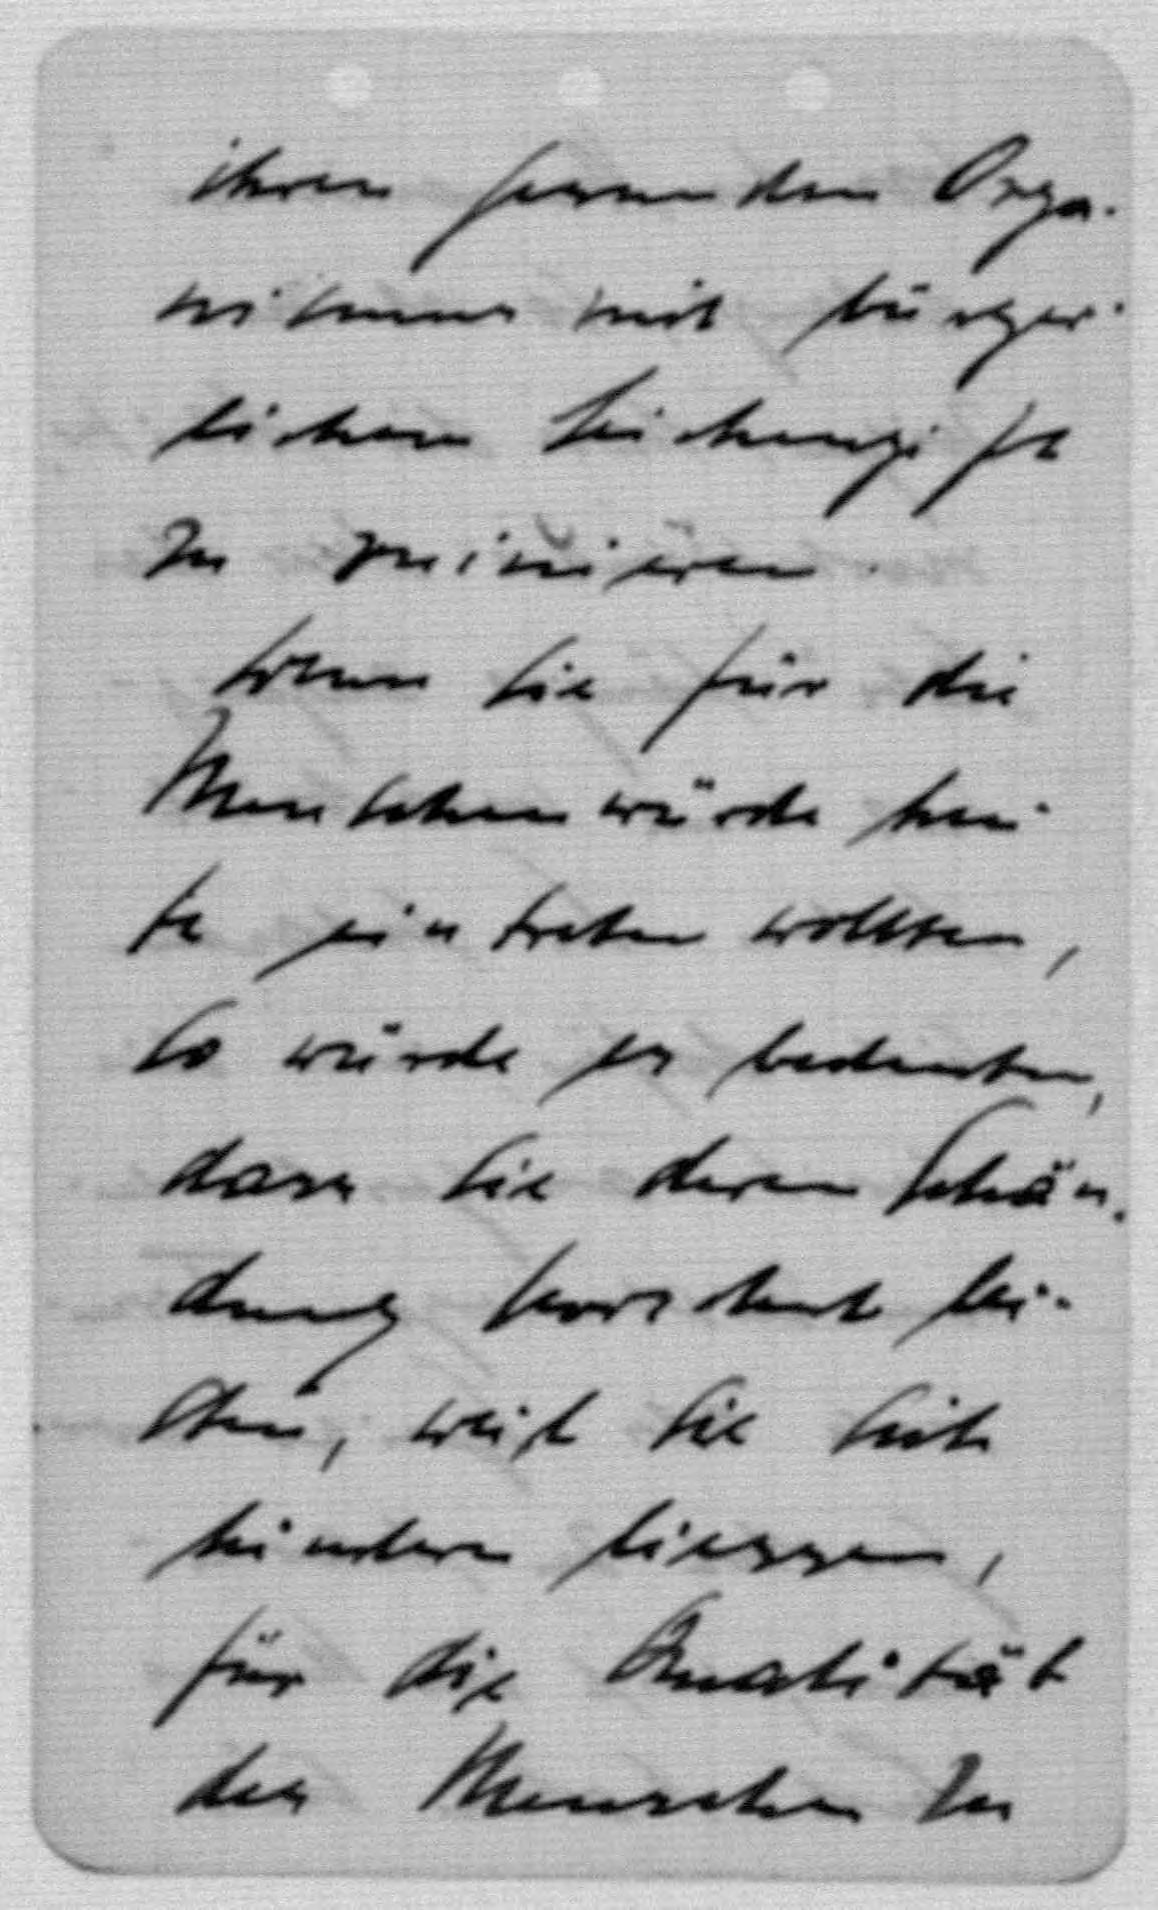 ihren gesunden Orga-
nismus mit bürger-
lichem Leichengift
zu ruinieren.
Wenn Sie für die
Menschenwürde heu-
te eintreten wollten,
so würde es bedeuten,
dass Sie deren Schän-
dung Vorschub lei-
sten, weil Sie sich
hindern liessen,
für die Qualität
des Menschen zu